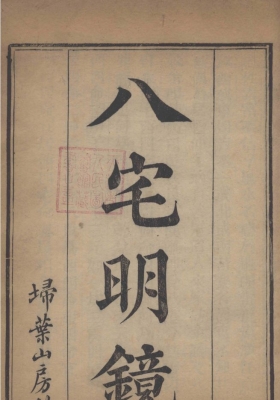 八宅明鏡
掃葉山房